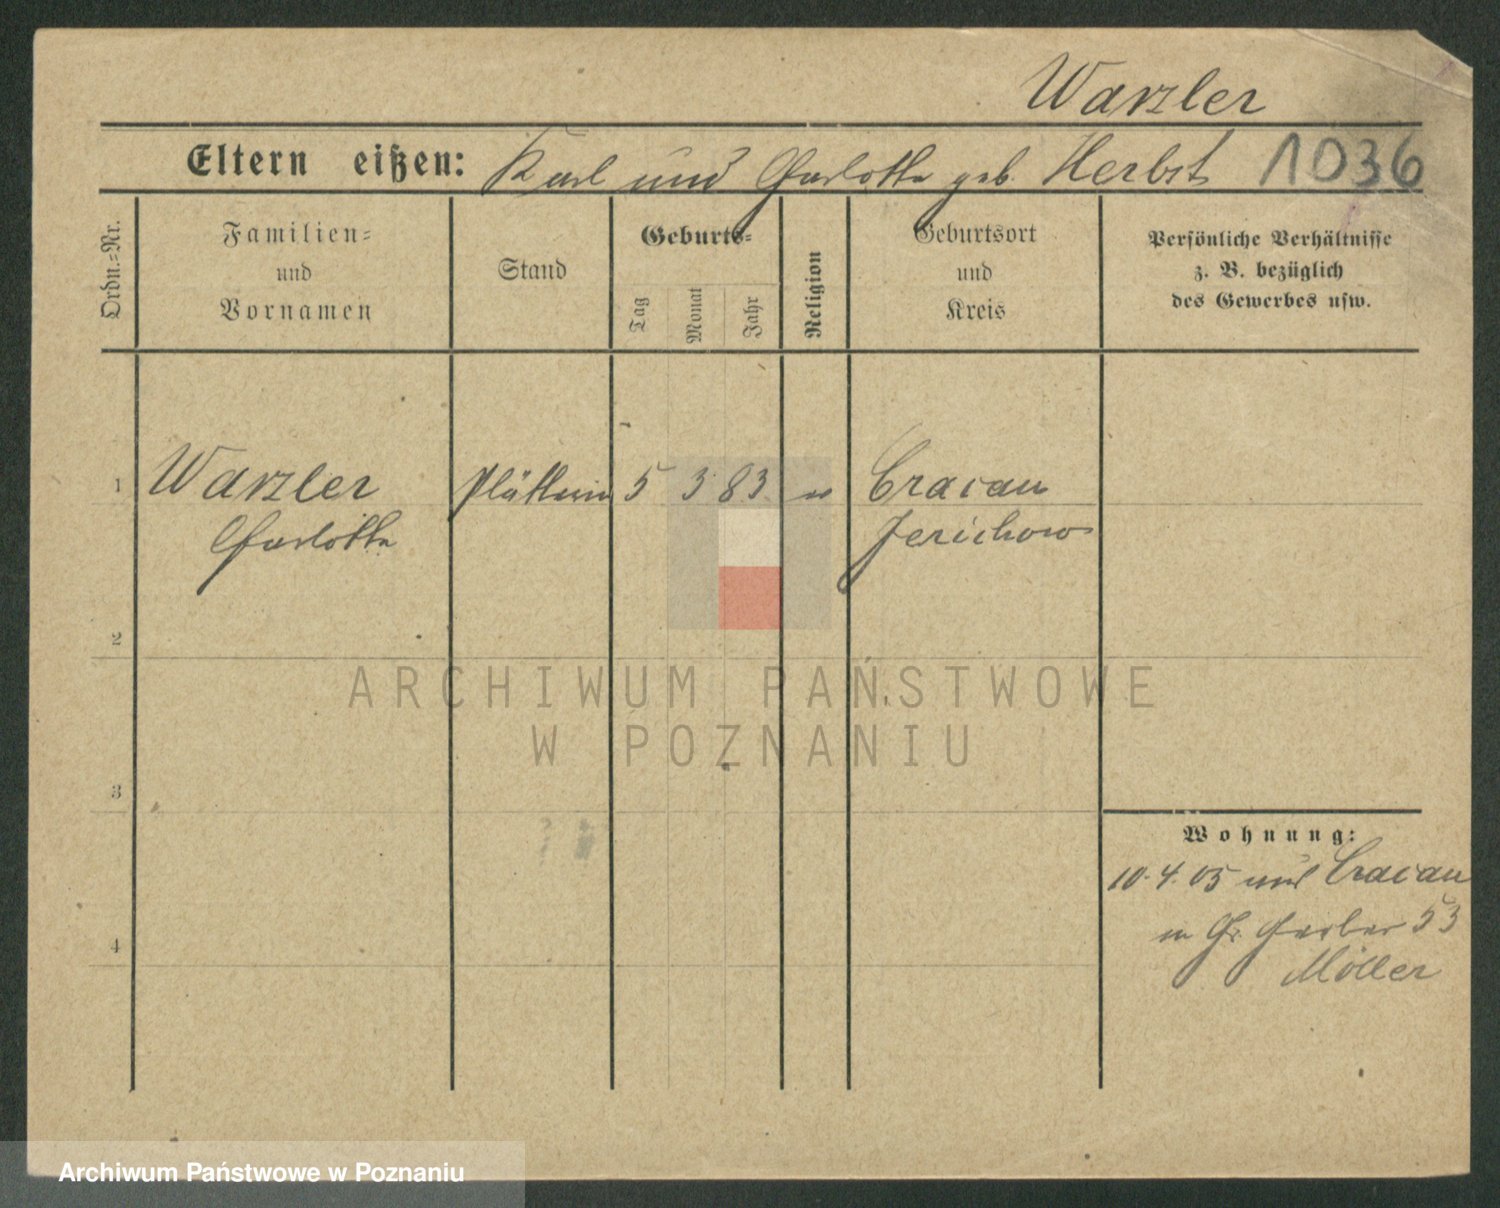 Warzler
Eltern eißen: Karl und Charlotte geb. Herbst 1036
Ordn.=Nr.
Familien=
und
Vornamen
Stand
Geburts=
Tag
Monat
Jahr
Religion
Geburtsort
und
Kreis
Persönliche Verhältnisse
z. B. bezüglich
des Gewerbes usw.
1 Warzler Plätterin 5 3 83 Cracau
Charlotte Jerichow
2
ARCHIWUM PAŃSTWOWE
W POZNANIU
3
Wohnung:
10.4.05 Cracau
Gr. Gerber 53
Möller
4
Archiwum Państwowe w Poznaniu